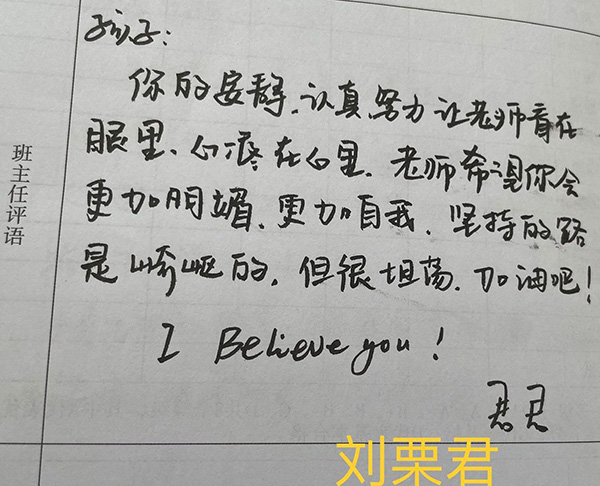 孩子:
你的安静、认真、努力让老师看在
眼里、心疼在心里、老师希望你会
更加明媚、更加自我、坚持的路
是崎岖的,但很坦荡、加油吧!
I Believe you!
君君
班主任评语
刘栗君